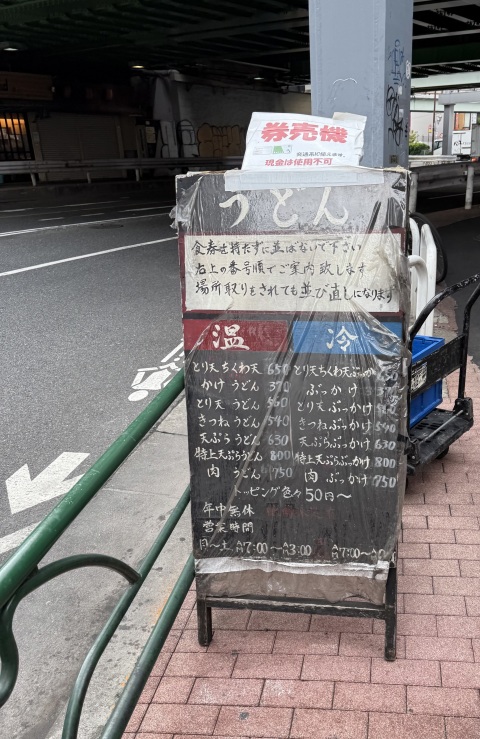 券売機
交通系IC
現金は使用不可
うどん
食券を持たずに並ばないで下さい
右上の番号順でご案内致します
場所取りをされても並び直しになります
温
冷
とり天ちくわ天 650 とり天ちくわ天ぶっかけ
かけ うどん 370 ぶっかけ
とり天 うどん 560 とり天 ぶっかけ
きつね うどん 540 きつねぶっかけ 540
天ぷら うどん 630 天ぷらぶっかけ 630
特上天ぷらうどん 800 特上天ぷらぶっかけ 800
肉 うどん 750 肉 ぶっかけ 750
トッピング色々 50円〜
年中無休
営業時間
月〜土 7:00〜 3:00 7:00〜